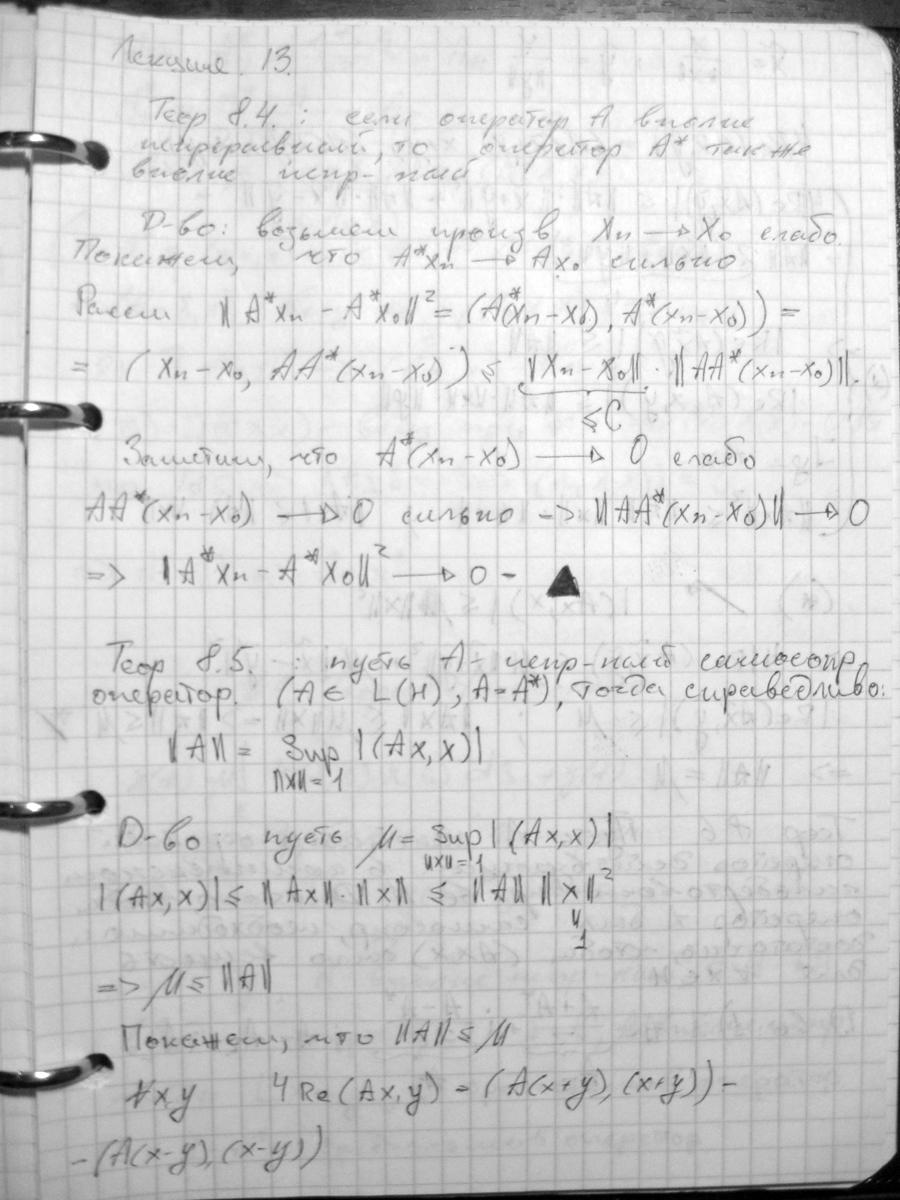 Лекция 13.
Теор 8.4. : если оператор A вполне
непрерывный, то оператор A* также
вполне непр-ный
D-во: возьмем произв Xn → X0 слабо.
Покажем, что A*xn → Ax0 сильно
Рассм ||A*xn - A*x0||² = (A*(xn-x0), A*(xn-x0)) =
= (xn-x0, AA*(xn-x0)) ≤ ||xn-x0|| · ||AA*(xn-x0)||.
≤ C
Заметим, что A*(xn-x0) → 0 слабо
AA*(xn-x0) → 0 сильно -> ||AA*(xn-x0)|| → 0
=> ||A*xn - A*x0||² → 0 - ▲
Теор 8.5. : пусть A - непр-ный самосопр.
оператор. (A ∈ L(H), A=A*), тогда справедливо:
||A|| = Sup |(Ax,x)|
||x||=1
D-во: пусть M = Sup |(Ax,x)|
||x||=1
|(Ax,x)| ≤ ||Ax||·||x|| ≤ ||A|| ||x||²
"
1
=> M ≤ ||A||
Покажем, что ||A|| ≤ M
∀x,y 4Re(Ax,y) = (A(x+y),(x+y)) -
-(A(x-y),(x-y))